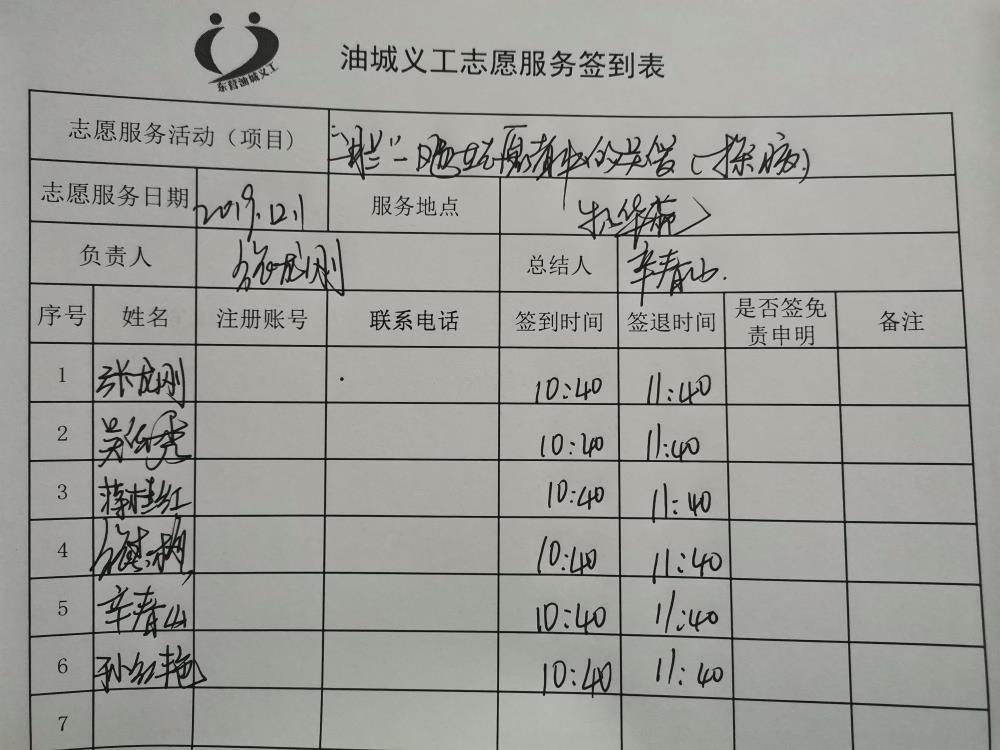 东营油城义工
油城义工志愿服务签到表
志愿服务活动（项目）
志愿服务日期 2019.12.1 服务地点
负责人 总结人 辛春山.
序号 姓名 注册账号 联系电话 签到时间 签退时间 是否签免责申明 备注
1 张龙刚 10:40 11:40
2 10:40 11:40
3 蒋桂红 10:40 11:40
4 10:40 11:40
5 辛春山 10:40 11:40
6 孙红艳 10:40 11:40
7